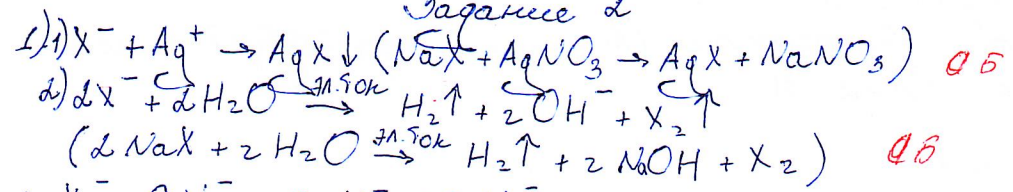 Задание 2
1) 1) X⁻ + Ag⁺ → AgX↓ (NaX + AgNO₃ → AgX + NaNO₃)
2) 2X⁻ + 2H₂O эл.ток → H₂↑ + 2OH⁻ + X₂↑
(2NaX + 2H₂O эл.ток → H₂↑ + 2NaOH + X₂)